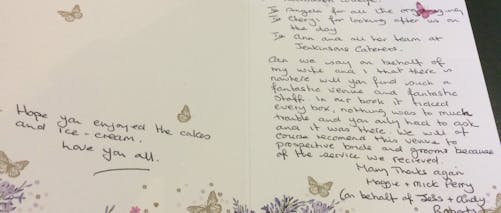 Hope you enjoyed the cakes
and ice-cream.
Love you all.
To Angela for all the organising
To Cheryl for looking after us on
the day
To Ann and all her team at
Jenkinsons Caterers.
Can we say on behalf of
my wife and I that there is
nowhere will you find such a
fantastic venue and fantastic
staff. In our book it ticked
every box, nothing was to much
trouble and you only had to ask
and it was there. We will of
course recomend this venue to
prospective brides and grooms because
of the service we recieved.
Many Thanks again
Maggie + Mick Perry
(on behalf of Jess + Andy